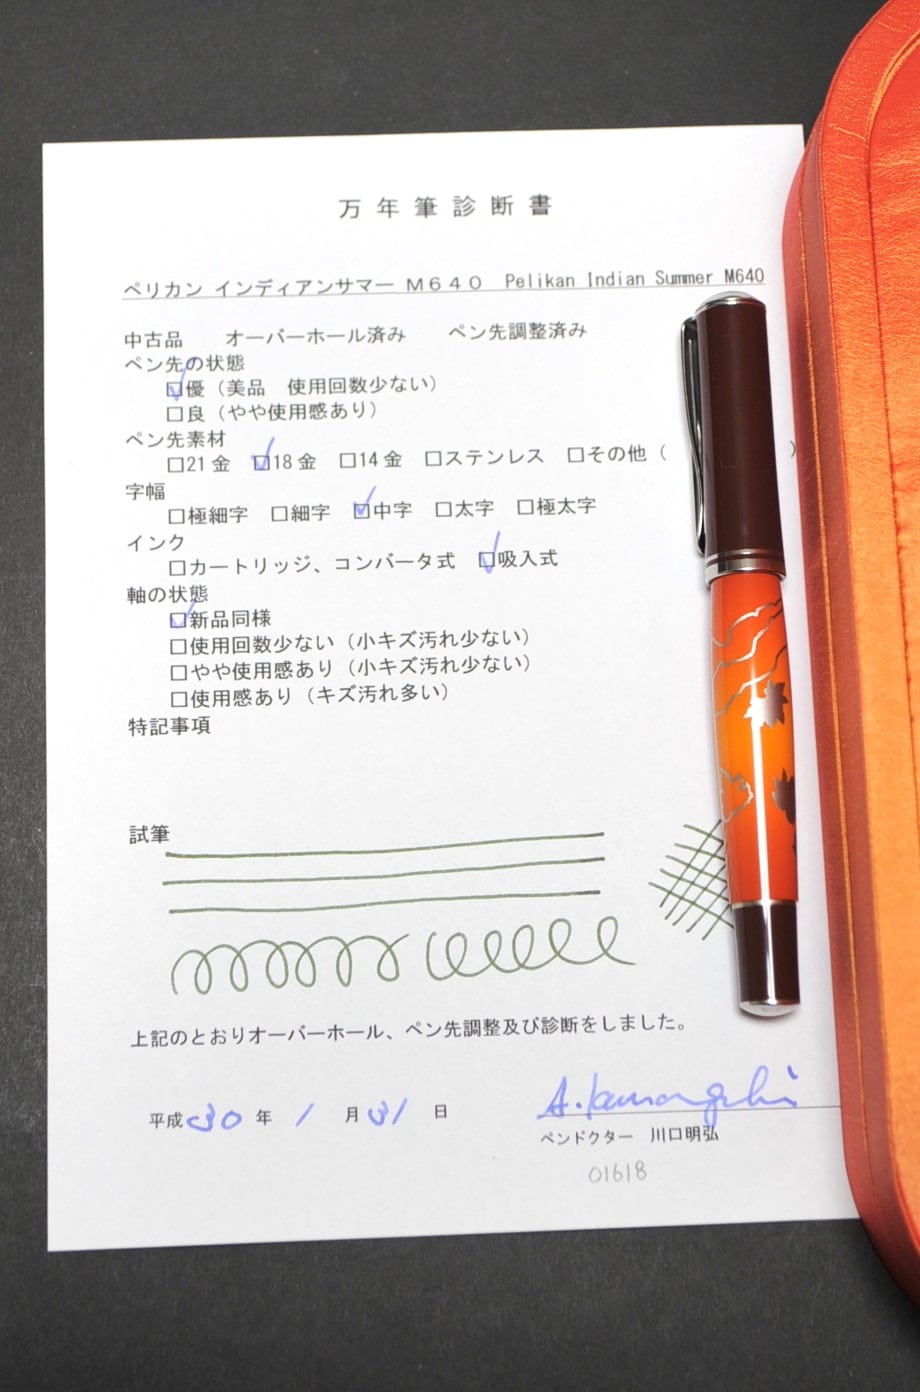 万年筆診断書
ペリカン インディアンサマー M640 Pelikan Indian Summer M640
中古品 オーバーホール済み ペン先調整済み
ペン先の状態
☑優（美品 使用回数少ない）
□良（やや使用感あり）
ペン先素材
□21金 ☑18金 □14金 □ステンレス □その他（ ）
字幅
□極細字 □細字 ☑中字 □太字 □極太字
インク
□カートリッジ、コンバータ式 ☑吸入式
軸の状態
☑新品同様
□使用回数少ない（小キズ汚れ少ない）
□やや使用感あり（小キズ汚れ少ない）
□使用感あり（キズ汚れ多い）
特記事項
試筆
上記のとおりオーバーホール、ペン先調整及び診断をしました。
平成30年 1月31日
ペンドクター 川口明弘
01618